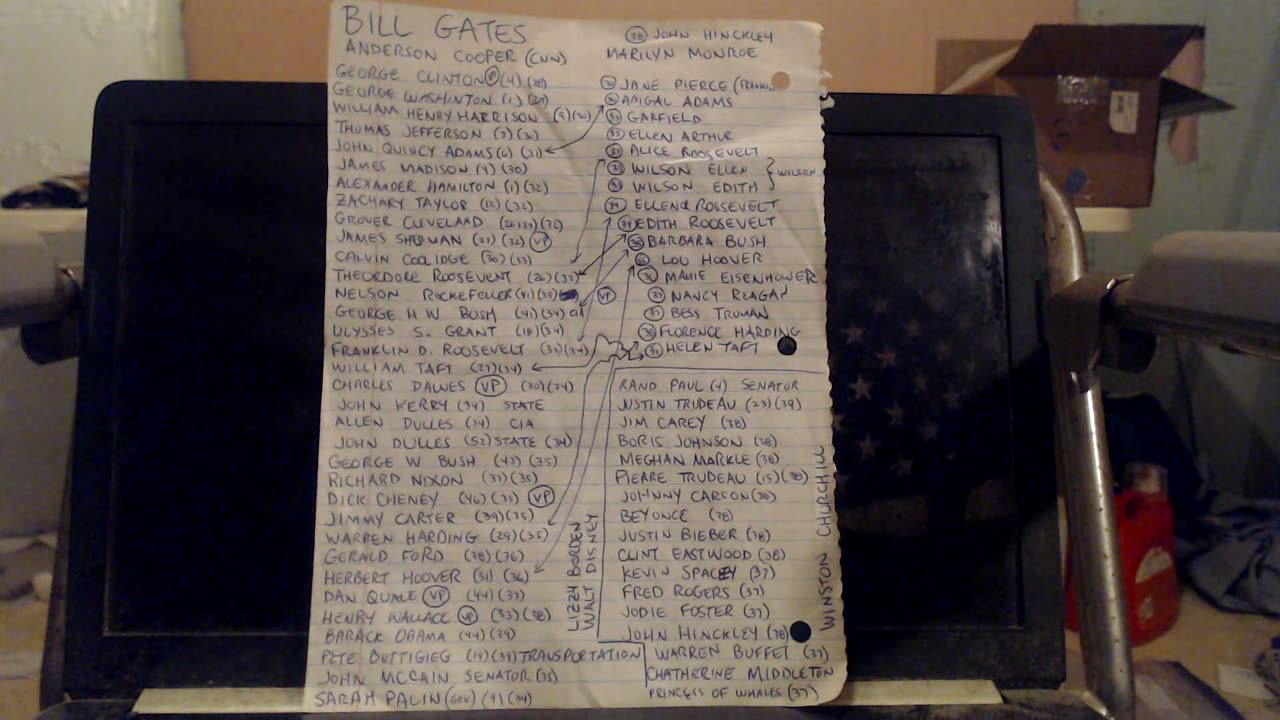 BILL GATES
ANDERSON COOPER (CNN)
GEORGE CLINTON VP (4) (28)
GEORGE WASHINTON (1) (29)
WILLIAM HENRY HARRISON (9) (30)
THOMAS JEFFERSON (3) (30)
JOHN QUINCY ADAMS (6) (31)
JAMES MADISON (4) (30)
ALEXANDER HAMILTON (1) (32)
ZACHARY TAYLOR (12) (32)
GROVER CLEVELAND (22/24) (32)
JAMES SHERMAN (27) (32) VP
CALVIN COOLIDGE (30) (33)
THEORDORE ROOSEVENT (26) (33)
NELSON ROCKEFELLER (41) (35) VP
GEORGE H W BUSH (41) (34) CIA
ULYSSES S. GRANT (18) (34)
FRANKLIN D. ROOSEVELT (32) (34)
WILLIAM TAFT (27) (34)
CHARLES DAWES VP (30) (34)
JOHN KERRY (34) STATE
ALLEN DULLES (34) CIA
JOHN DULLES (52) STATE (34)
GEORGE W BUSH (43) (35)
RICHARD NIXON (37) (35)
DICK CHENEY (46) (35) VP
JIMMY CARTER (39) (35)
WARREN HARDING (29) (35)
GERALD FORD (38) (36)
HERBERT HOOVER (31) (36)
DAN QUALE VP (44) (37)
HENRY WALLACE VP (33) (38)
BARACK OBAMA (44) (39)
PETE BUTTIGIEG (19) (39) TRANSPORTATION
JOHN MCCAIN SENATOR (35)
SARAH PALIN (GOV) (9) (34)
38 JOHN HINCKLEY
MARILYN MONROE
JANE PIERCE (FRANKLIN
ABIGAL ADAMS
GARFIELD
ELLEN ARTHUR
ALICE ROOSEVELT
WILSON ELLEN
WILSON EDITH
WILSON
ROOSEVELT
EDITH ROOSEVELT
BARBARA BUSH
LOU HOOVER
MAMIE EISENHOWER
NANCY REAGAN
BESS TRUMAN
FLORENCE HARDING
HELEN TAFT
RAND PAUL (4) SENATOR
JUSTIN TRUDEAU (23) (39)
JIM CAREY (38)
BORIS JOHNSON (38)
MEGHAN MARKLE (38)
PIERRE TRUDEAU (15) (38)
JOHNNY CARSON (38)
BEYONCE (38)
JUSTIN BIEBER (38)
CLINT EASTWOOD (38)
KEVIN SPACEY (37)
FRED ROGERS (37)
JODIE FOSTER (37)
JOHN HINCKLEY (38)
WARREN BUFFET (37)
CHATHERINE MIDDLETON
PRINCESS OF WHALES (37)
LIZZY BORDEN
WALT DISNEY
WINSTON CHURCHILL